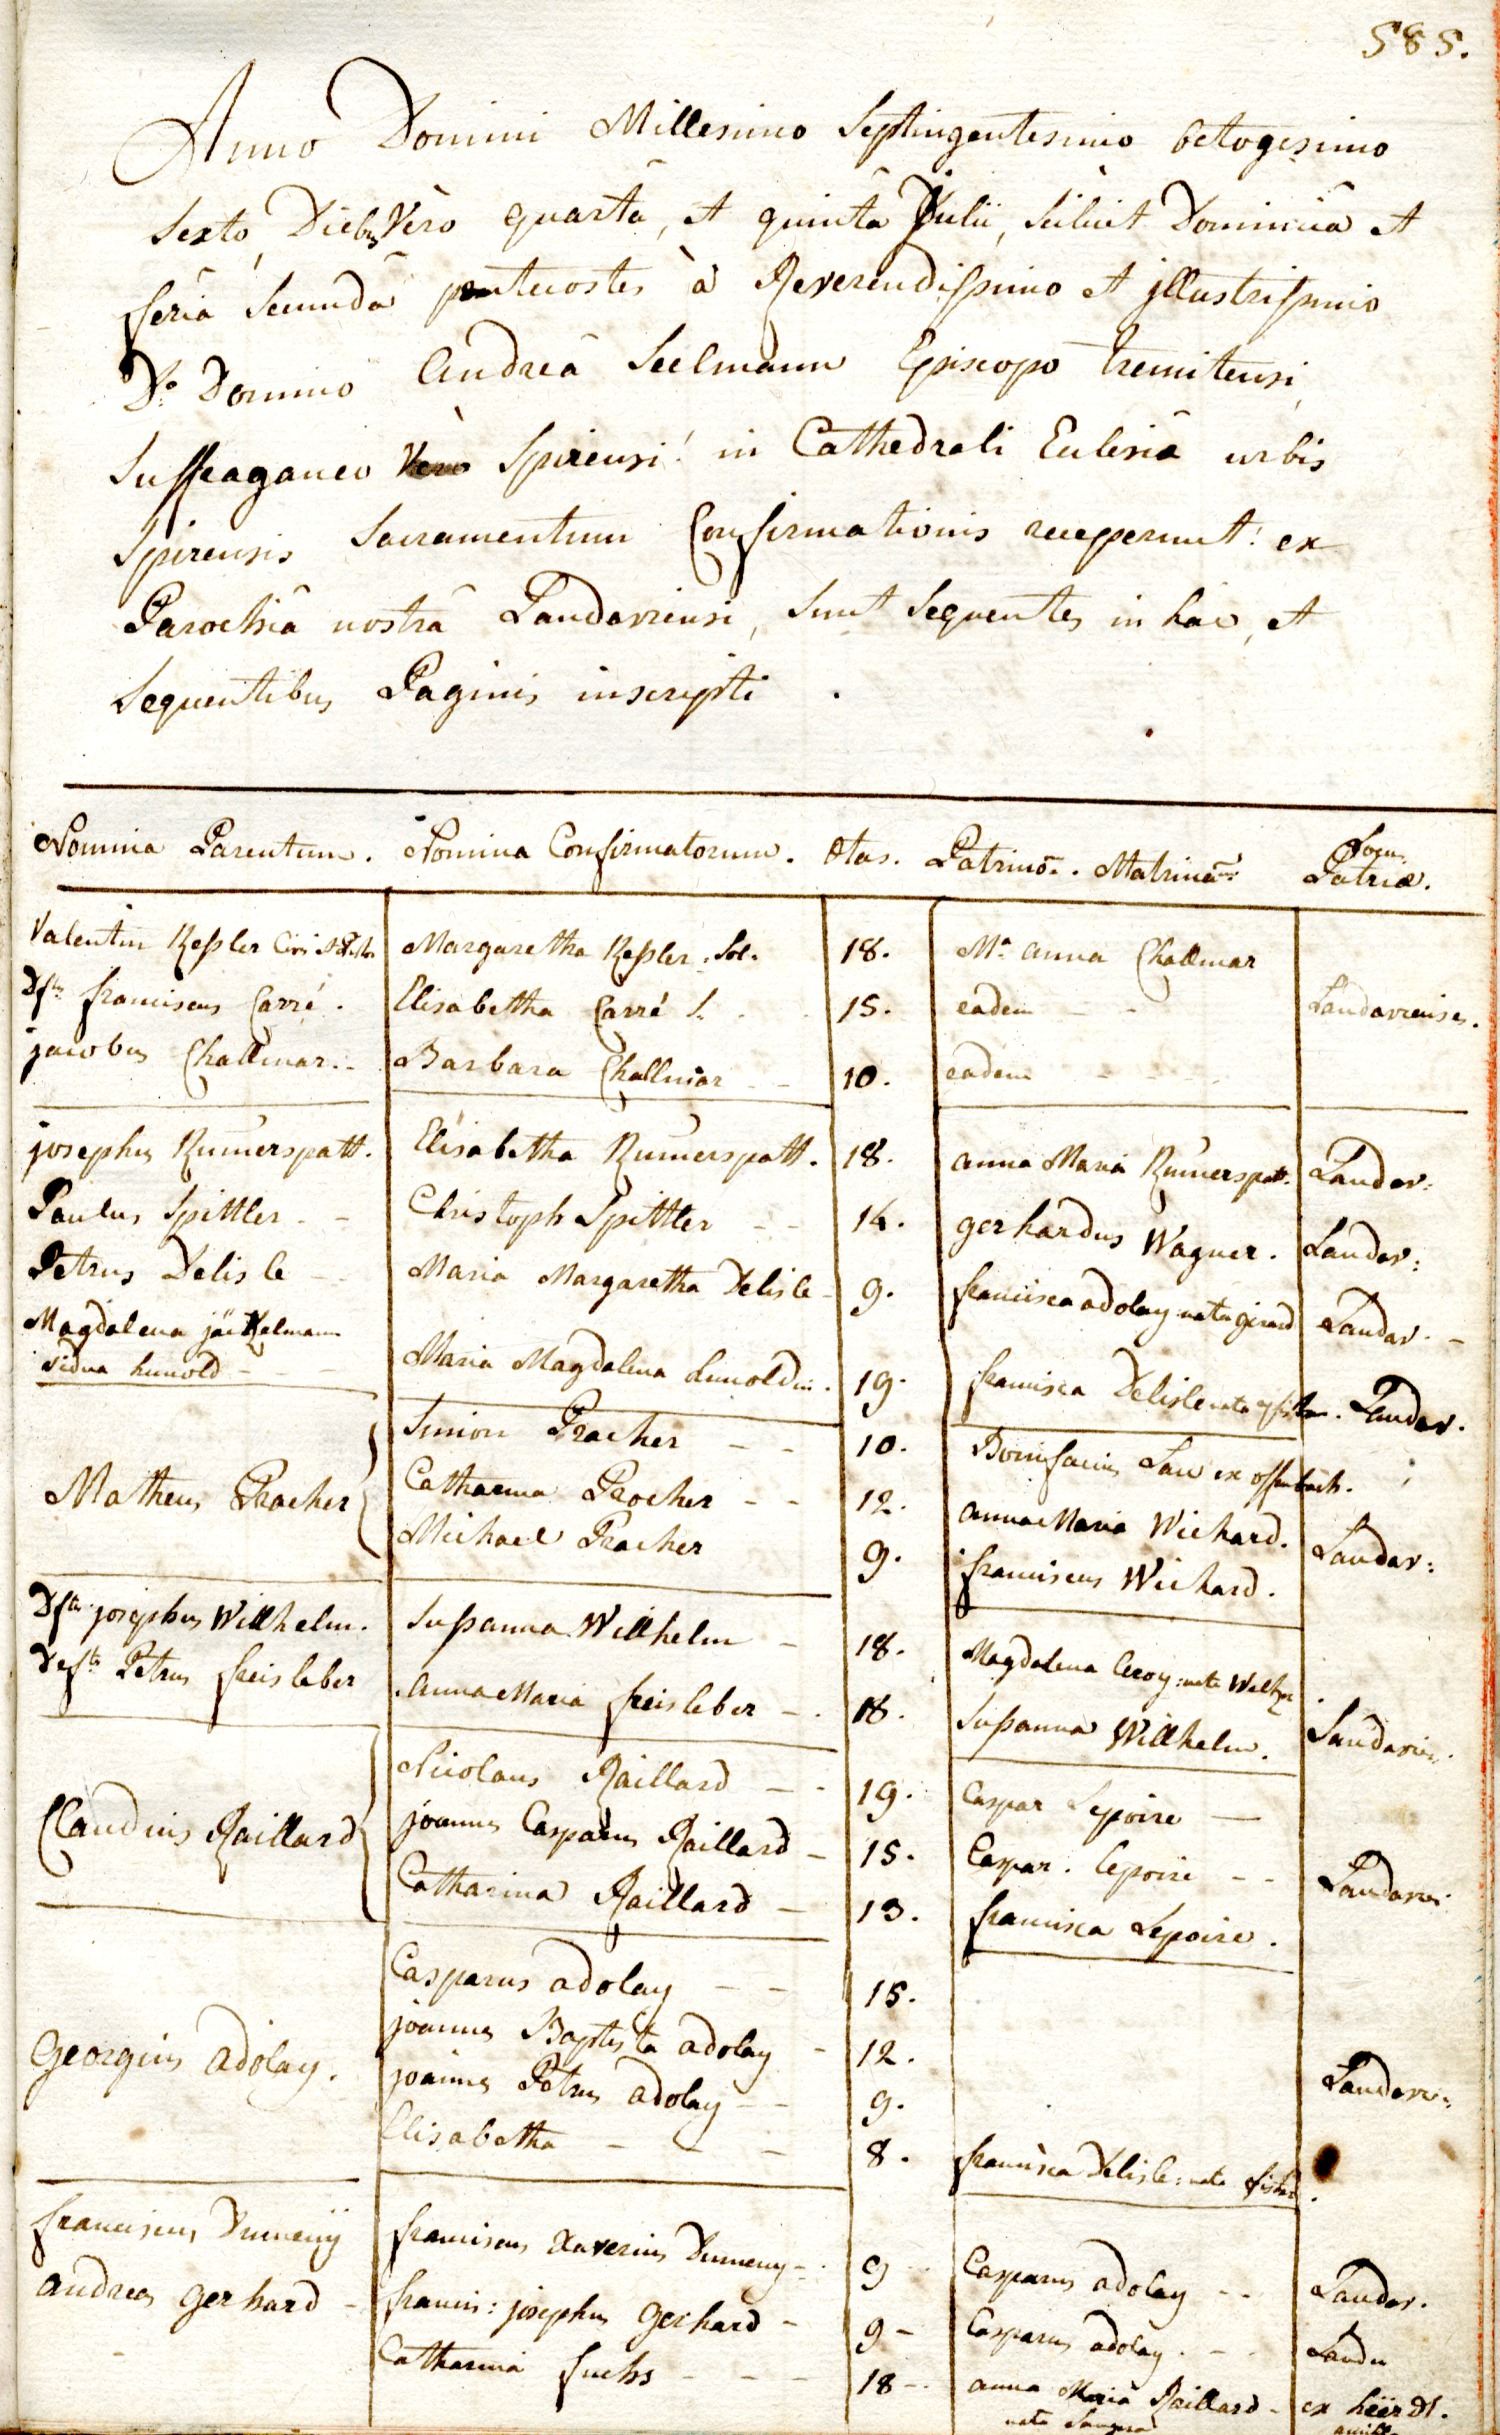 585.
Anno Domini Millesimo Septingentesimo octogesimo
Sexto, Diebus Vero quartâ, et quintâ Julii, Scilicet Dominicâ et
feriâ Secundâ pentecostes à Reverendissimo et jllustrissimo
Do. Domino Andreâ Seelmann Episcopo tremitensi,
Suffraganeo Vero Spirensi! in Cathedrali Eclesiâ urbis
Spirensis Sacramentum Confirmationis receperunt: ex
Parochiâ nostrâ Landaviensi, Sunt Sequentes in hac, et
Sequentibus Paginis inscripti.
Nomina Parentum. Nomina Confirmatorum. Ætas. Patrinor. Matrinar. Locus Patriæ.
Valentin Kessler Civis Margaretha Kessler. Sol. 18. Ma. anna Challmar
Dftus franciscus Carré. Elisabetha Carré S. 15. eadem Landavienses.
jacobus Challmar. Barbara Challmar 10. eadem
josephus Rumerspatt. Elisabetha Rumerspatt. 18. anna Maria Rumerspatt. Landav:
Paulus Spittler Christoph Spittler 14. gerhardus Wagner. Landav:
Petrus Delisle Maria Margaretha Delisle 9. francisca adolay nata girard Landav.
Magdalena
vidua hunold Maria Magdalena hunoldin. 19. francisca Delisle nata Landav.
Simon Pracher 10. Bonifacius Lau ex offenbach.
Matheus Pracher Catharina Pracher 12. anna Maria Wichard. Landav:
Michael Pracher 9. franciscus Wichard.
Dftus josephus Willhelm. Susanna Willhelm 18. Magdalena leroy: nata
Deftus Petrus freisleber Anna Maria freisleber 18. Susanna Willhelm. Landavien.
Nicolaus Raillard 19. Caspar Lepoire
Claudius Raillard joannes Casparus Raillard 15. Caspar. lepoire Landavi
Catharina Raillard 13. francisca Lepoire.
Casparus adolay 15.
joannes Baptista adolay 12.
georgius adolay. joannes Petrus adolay 9. Landavi:
Elisabetha 8. francisca Delisle: nata fisher.
franciscus Dumeny franciscus Xaverius Dumeny 9 Casparus adolay Landav.
andreas gerhard francis: josephus gerhard 9 Casparus adolay. Landu
Catharina fuchs 18 anna Maria Raillard ex
nata